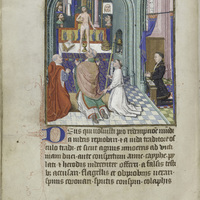 Deus qui voluisti pro redemptione mundi
a iudeis reprobari et a iuda traditore o
sculo tradi et sicut agnus innocens ad vic
timam duci atque conspectui anne cayphe py
lati et herodis indecenter offerri a falsis testi
bus accusari flagellis et obprobriis vexari
spinis coronari sputis conspui colaphis